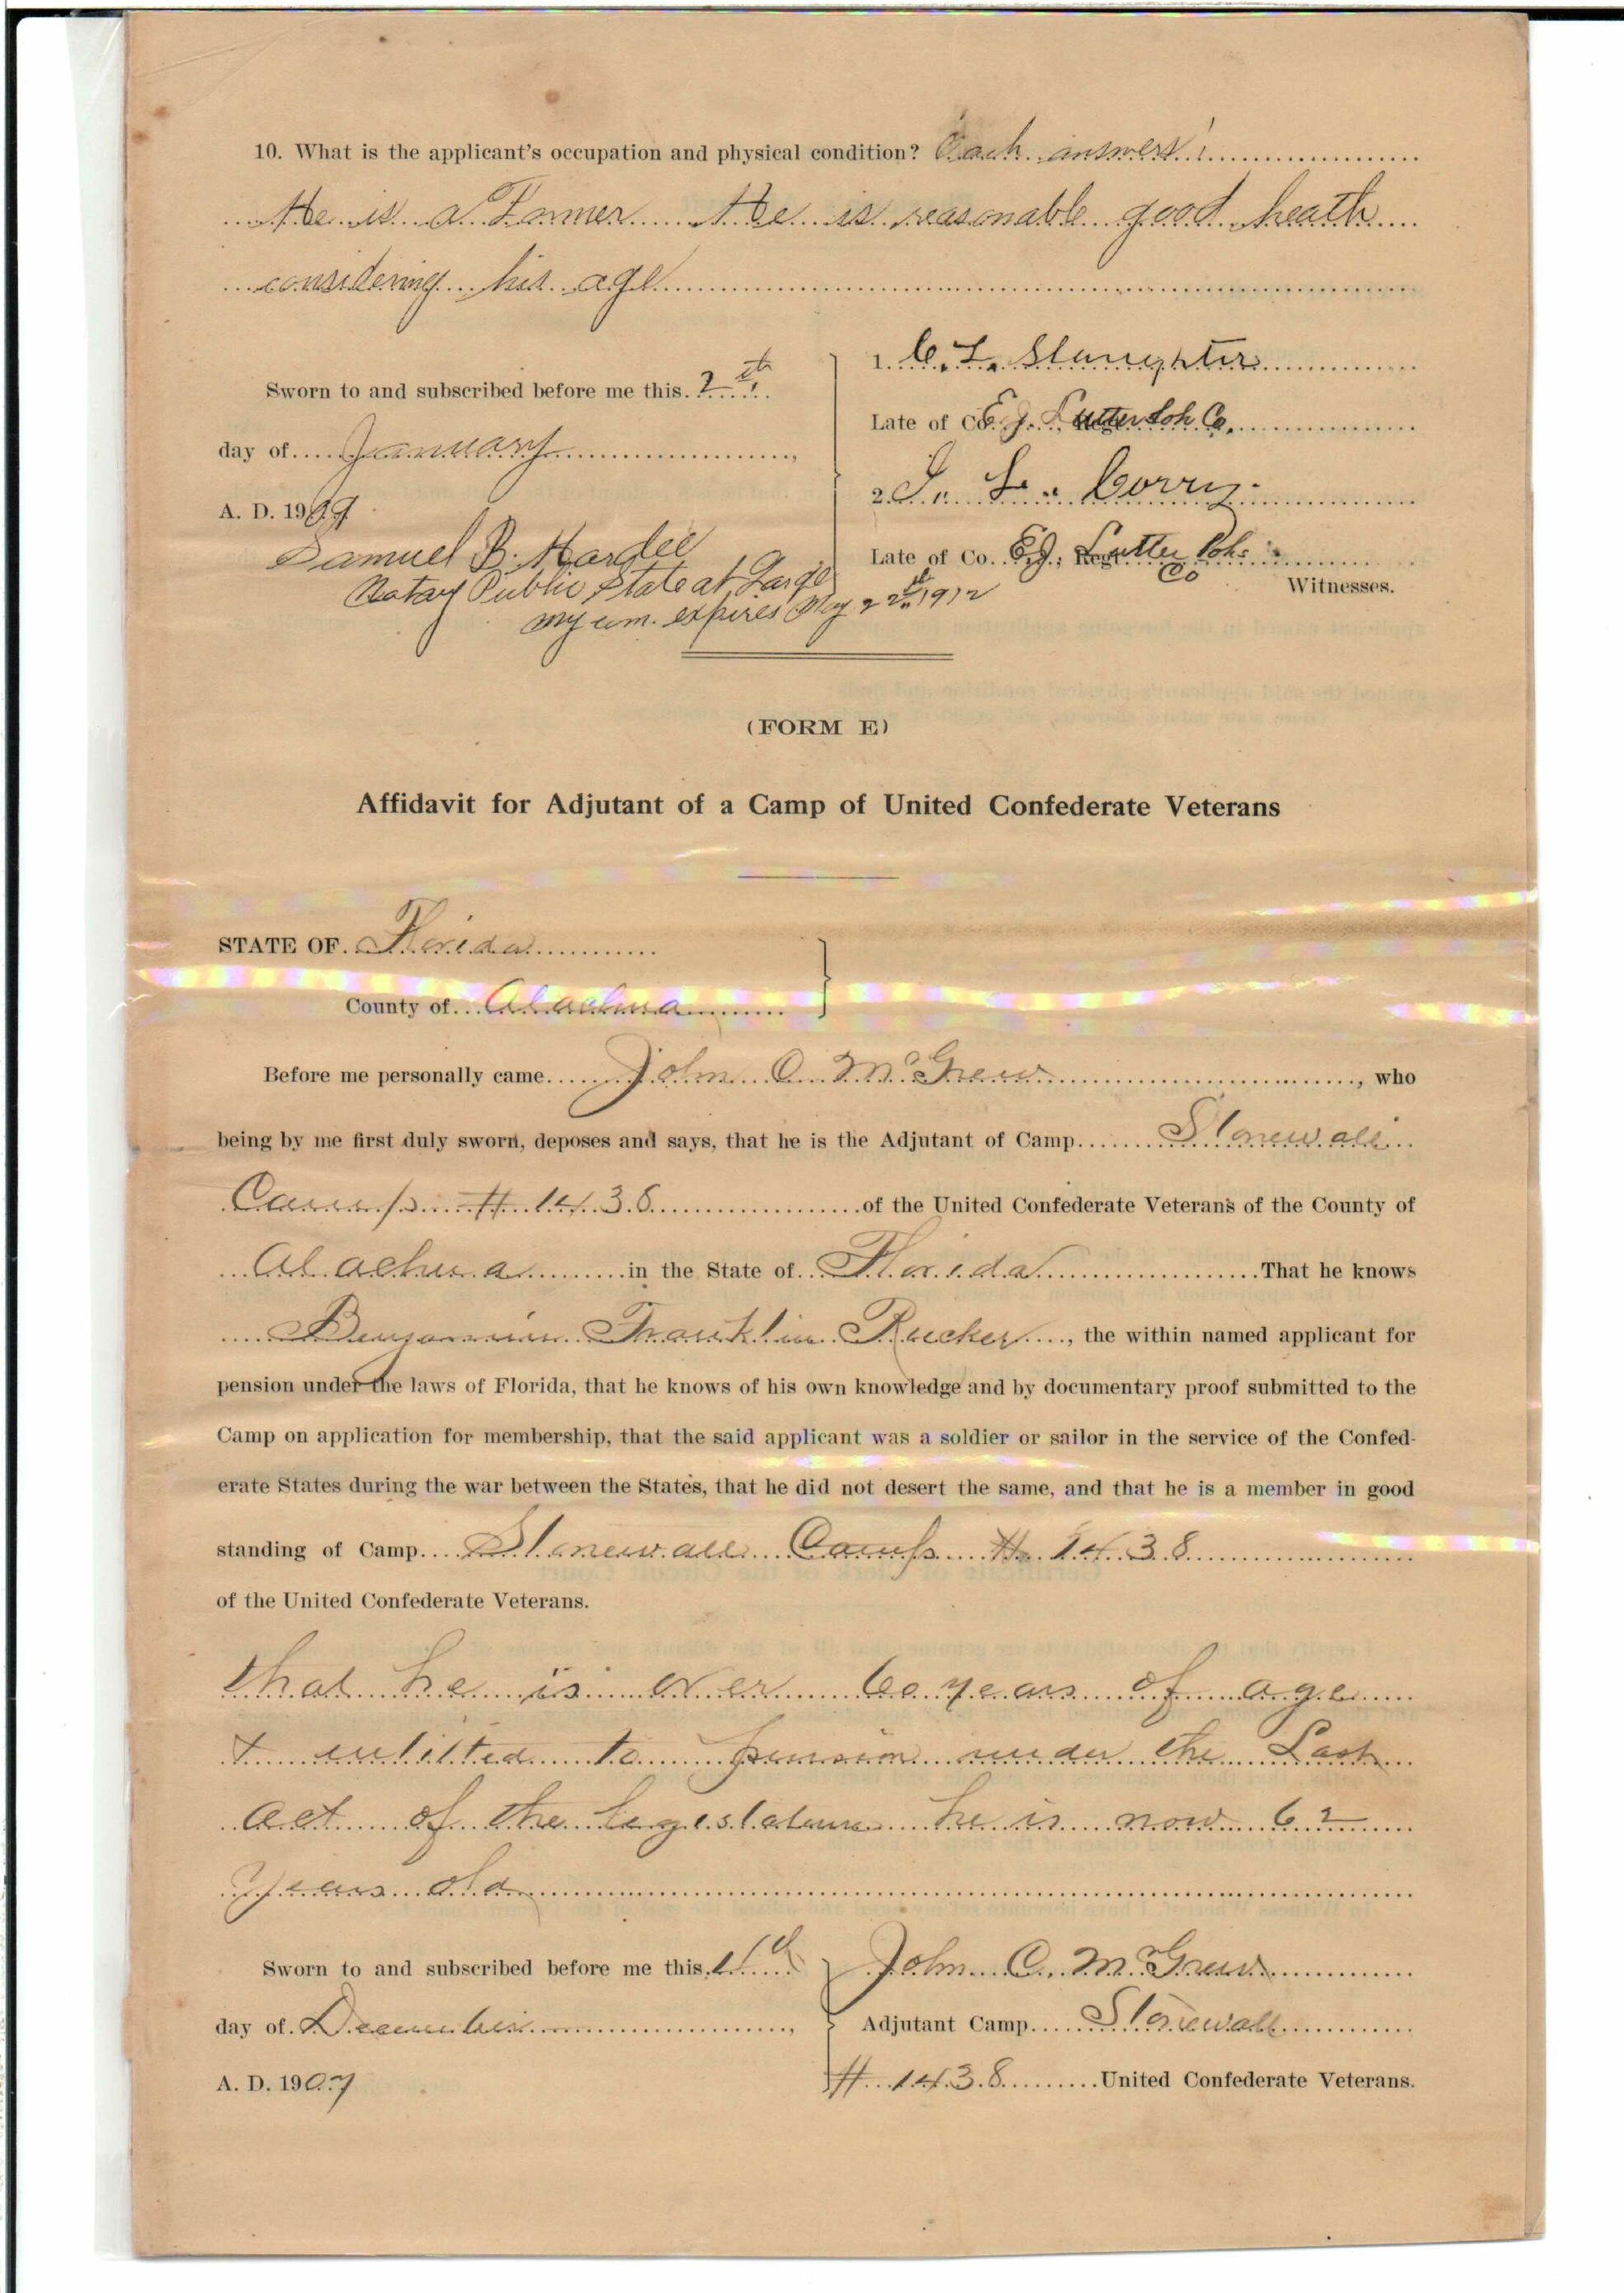 10. What is the applicant's occupation and physical condition? Each answers:
He is a Farmer He is reasonable good heath
considering his age
Sworn to and subscribed before me this 2th
day of January,
A. D. 1909
Samuel B. Hardee
Notary Public State at Large
my com. expires May 22th 1912
1. C. L. Slaughter
Late of Co. E. J. Lutterloh Co.
2. J. L. Corry
Late of Co. E J, Regt. Lutter lohs
Co
Witnesses.
(FORM E)
Affidavit for Adjutant of a Camp of United Confederate Veterans
STATE OF Florida
County of Alachua
Before me personally came John C McGrew, who
being by me first duly sworn, deposes and says, that he is the Adjutant of Camp Stonewall
Camp # 1438 of the United Confederate Veterans of the County of
Alachua in the State of Florida That he knows
Benjamin Franklin Rucker, the within named applicant for
pension under the laws of Florida, that he knows of his own knowledge and by documentary proof submitted to the
Camp on application for membership, that the said applicant was a soldier or sailor in the service of the Confed-
erate States during the war between the States, that he did not desert the same, and that he is a member in good
standing of Camp Stonewall Camp # 1438
of the United Confederate Veterans.
that he is over 60 years of age
& entitled to pension under the Last
act of the legislature he is now 62
years old
Sworn to and subscribed before me this
day of December,
A. D. 1907
John C. McGrew
Adjutant Camp Stonewall
# 1438 United Confederate Veterans.